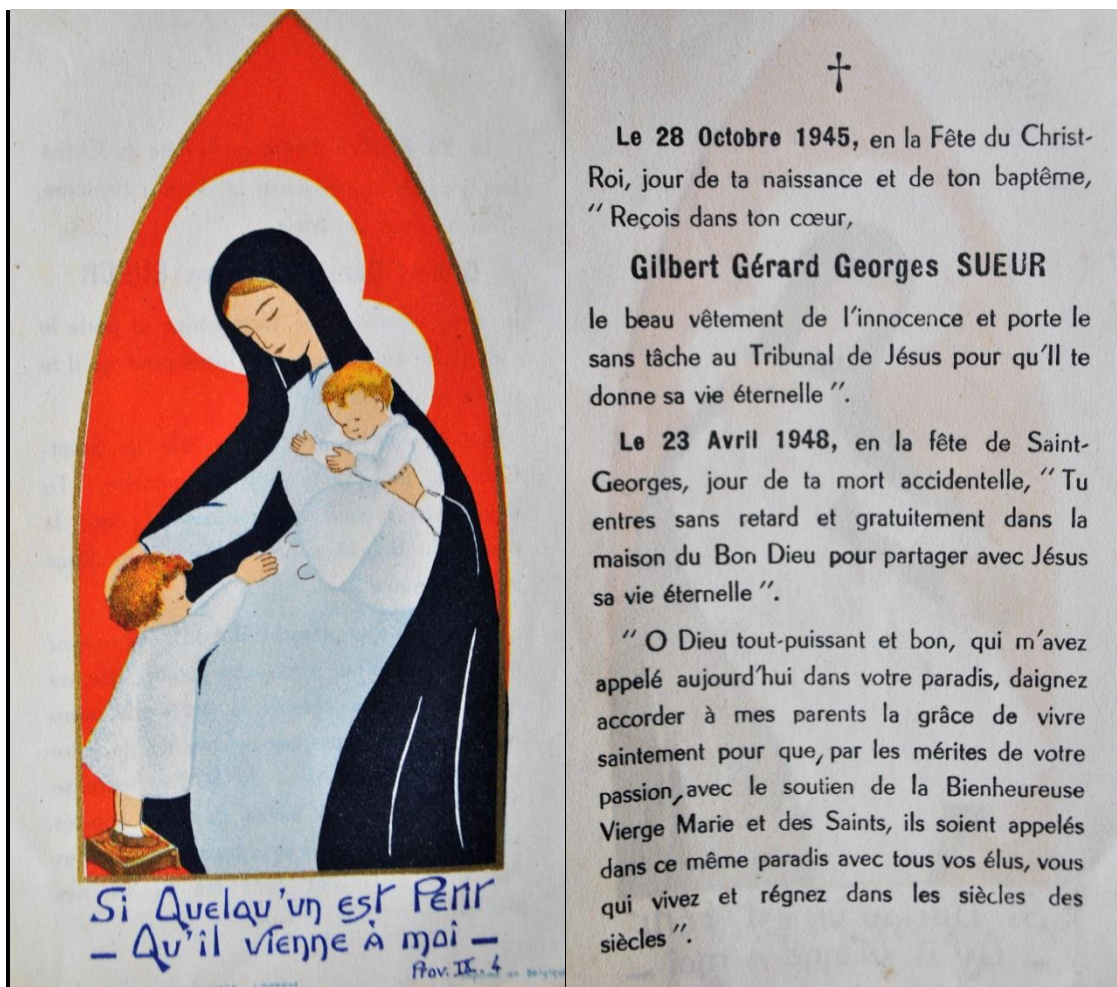 Si Quelqu'un est Petit
— Qu'il vienne à moi —
Prov. IX. 4
✝
Le 28 Octobre 1945, en la Fête du Christ-
Roi, jour de ta naissance et de ton baptême,
" Reçois dans ton cœur,
Gilbert Gérard Georges SUEUR
le beau vêtement de l'innocence et porte le
sans tâche au Tribunal de Jésus pour qu'Il te
donne sa vie éternelle ".
Le 23 Avril 1948, en la fête de Saint-
Georges, jour de ta mort accidentelle, " Tu
entres sans retard et gratuitement dans la
maison du Bon Dieu pour partager avec Jésus
sa vie éternelle ".
" O Dieu tout-puissant et bon, qui m'avez
appelé aujourd'hui dans votre paradis, daignez
accorder à mes parents la grâce de vivre
saintement pour que, par les mérites de votre
passion, avec le soutien de la Bienheureuse
Vierge Marie et des Saints, ils soient appelés
dans ce même paradis avec tous vos élus, vous
qui vivez et régnez dans les siècles des
siècles ".